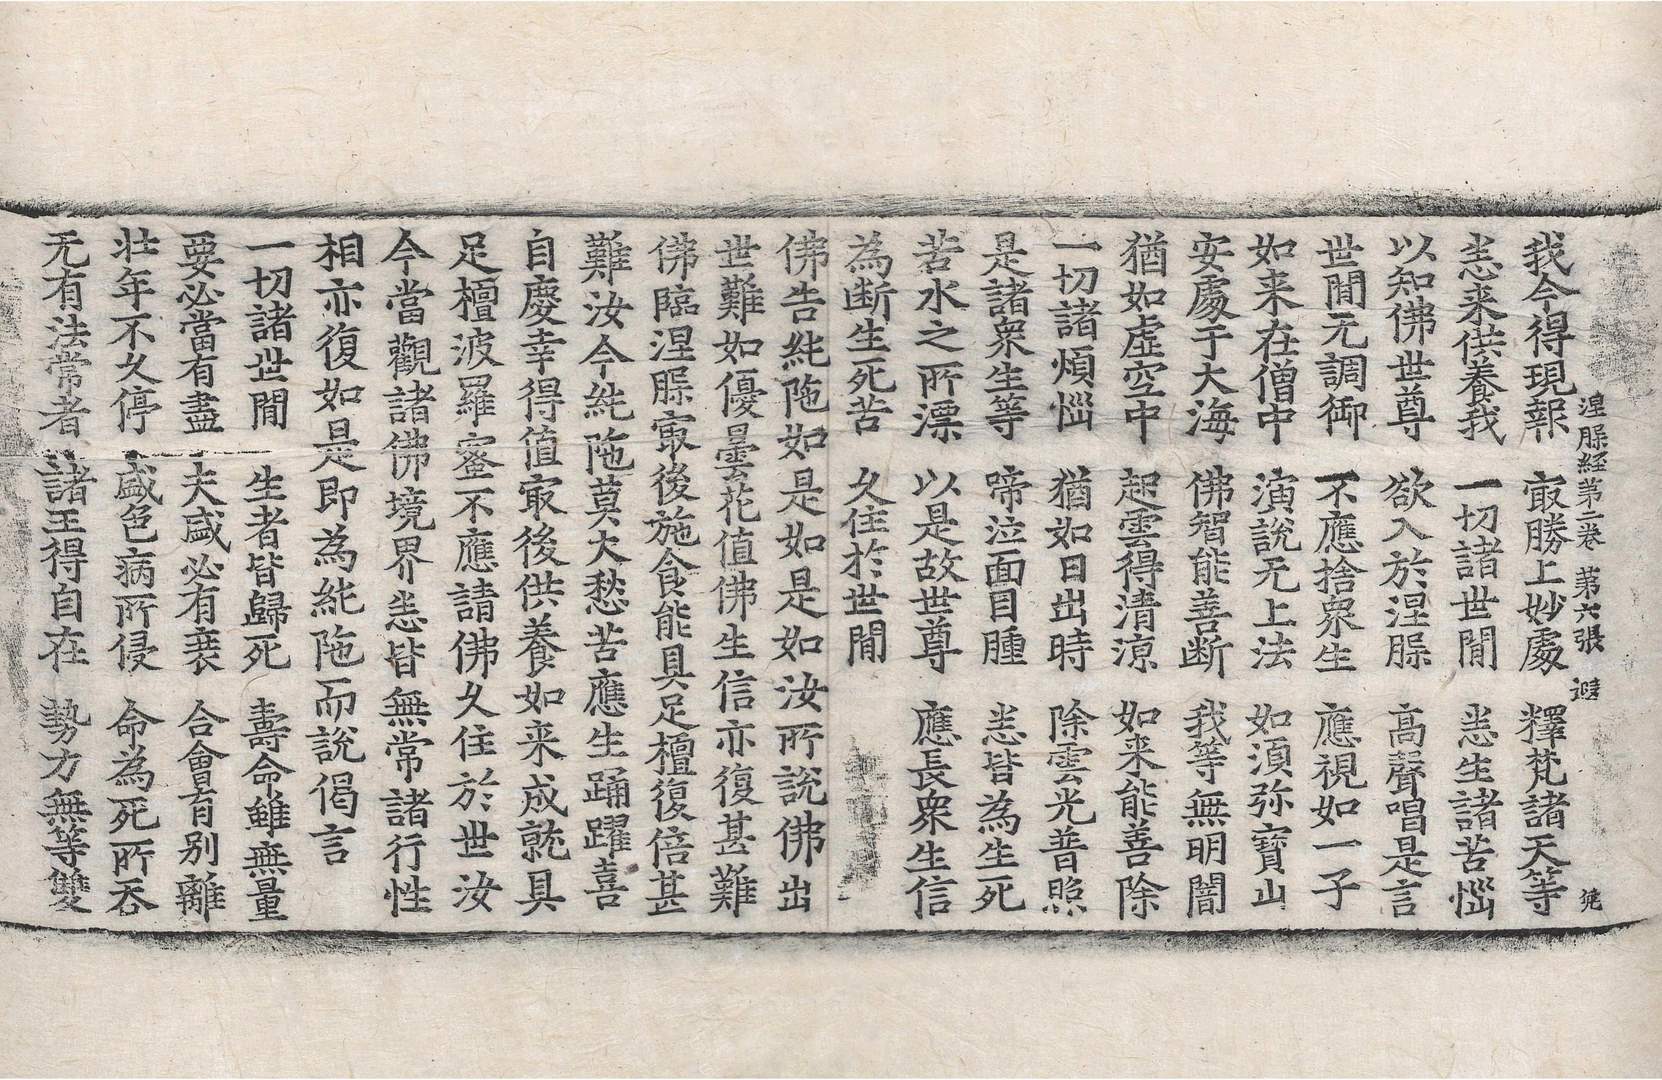 涅槃経第二卷 第六張 遐
我今得現報 㝡勝上妙處 釋梵諸天等
悉来供養我 一切諸世間 悉生諸苦惱
以知佛世尊 欲入於涅槃 高聲唱是言
世間无調御 不應捨衆生 應視如一子
如来在僧中 演說无上法 如須弥寶山
安處于大海 佛智能善断 我等無明闇
猶如虛空中 起雲得清涼 如来能善除
一切諸煩惱 猶如日出時 除雲光普照
是諸衆生等 啼泣面目腫 悉皆為生死
苦水之所漂 以是故世尊 應長衆生信
為断生死苦 久住於世間
佛告純陁如是如是如汝所說佛出
世難如優曇花值佛生信亦復甚難
佛臨涅槃㝡後施食能具足檀復倍甚
難汝今純陁莫大愁苦應生踊躍喜
自慶幸得值㝡後供養如来成就具
足檀波羅蜜不應請佛久住於世汝
今當觀諸佛境界悉皆無常諸行性
相亦復如是即為純陁而說偈言
一切諸世間 生者皆歸死 壽命雖無量
要必當有盡 夫盛必有衰 合會有别離
壯年不久停 盛色病所侵 命為死所吞
无有法常者 諸王得自在 勢力無等雙